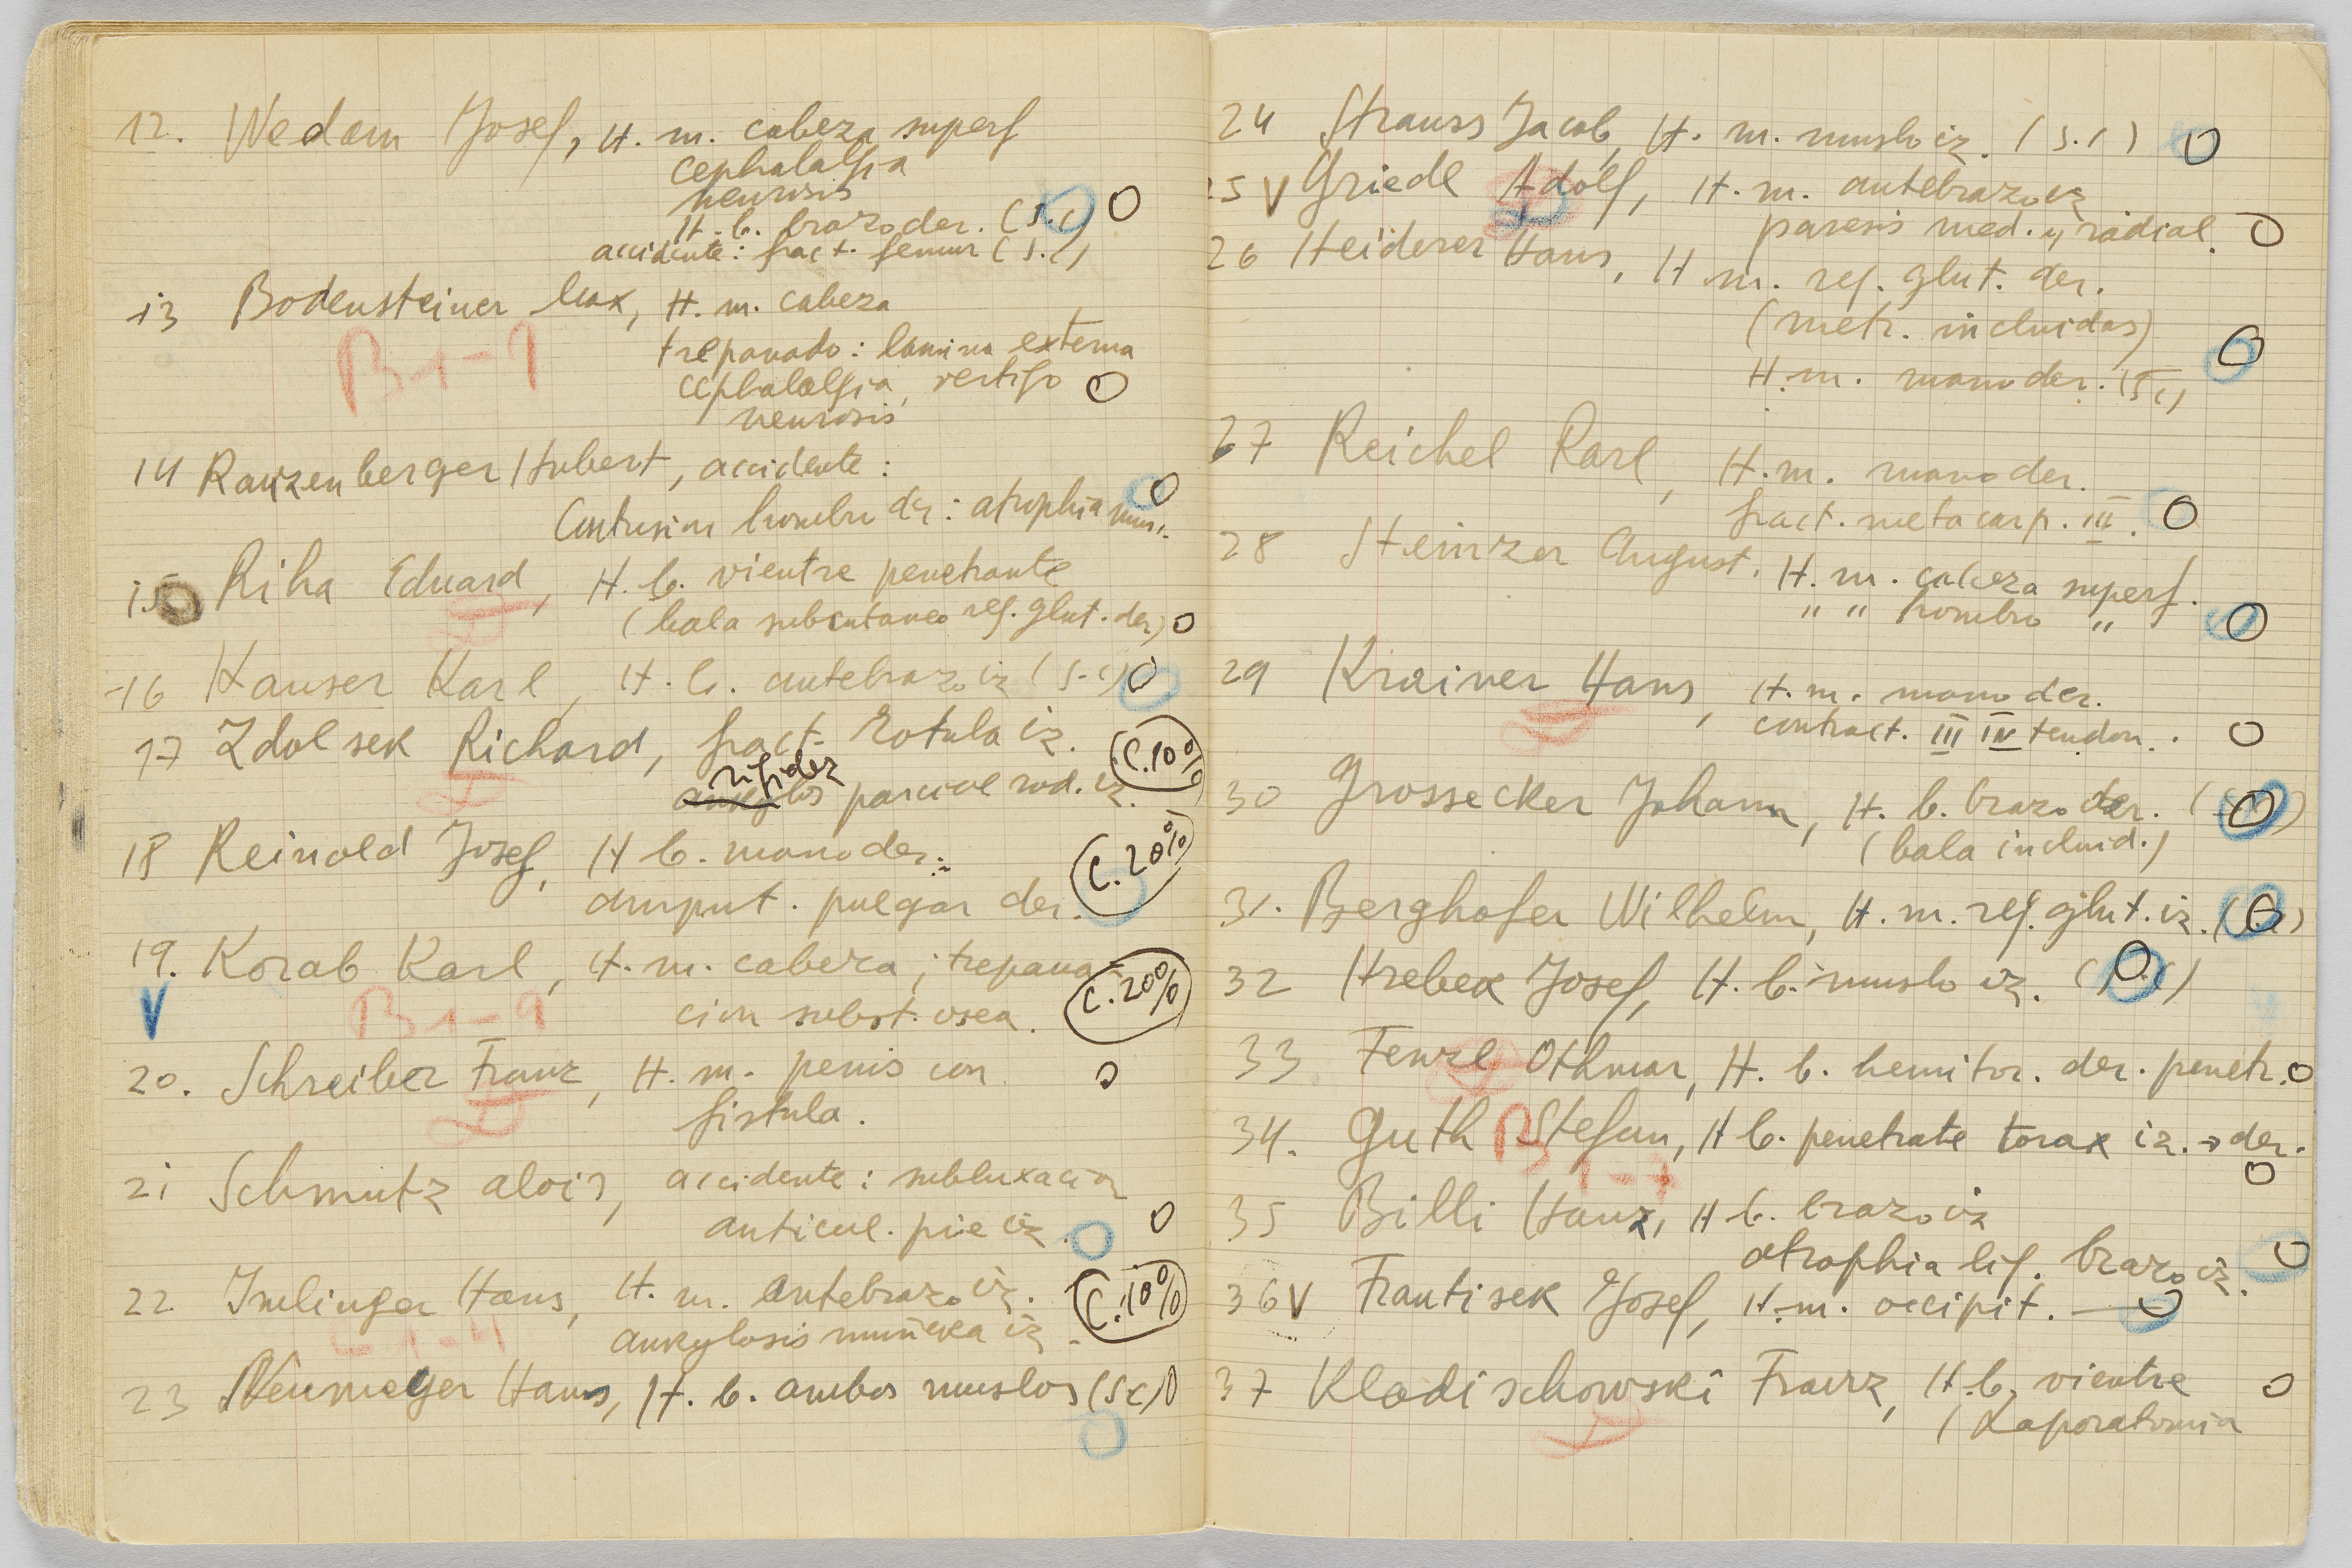 12. Wedam Josef, H. m. cabeza superf
cephalalgia
neurosis
H. b. brazo der. (s.c)
accidente: fract. femur (s.c)
13 Bodensteiner Max, H. m. cabeza
B 1-9
trepanado: lamina externa
cephalalgia, vertigo
neurosis
14 Ranzenberger Hubert, accidente:
Contusion hombro der: atrophia musc.
15 Riha Eduard, H. b. vientre penetrante
(bala subcutaneo reg. glut. der)
16 Hauser Karl, H. b. antebrazo iz (s.c)
17 Zdolsek Richard, fract. Rotula iz. C. 10%
rigidez
parcial rod. iz.
18 Reinold Josef, H b. mano der.: C. 20%
amput. pulgar der.
19. Korab Karl, H. m. cabeza; trepana-
V B 1-9
cion subst. osea. C. 20%
20. Schreiber Franz, H. m. penis con
fistula.
21 Schmutz Alois, accidente: subluxacion
articul. pie iz
22 Imlinger Hans, H. m. Antebrazo iz. C. 10%
ankylosis muñeka iz
23 Neumeyer Hans, H. b. ambos muslos (sc)
24 Strauss Jacob, H. m. muslo iz. (s.c)
25 V Griedl Adolf, H. m. antebrazo iz
paresis med. y radial.
26 Heiderer Hans, H m. reg. glut. der.
(metr. incluidas)
H. m. mano der. (s c)
27 Reichel Karl, H. m. mano der.
fract. metacarp. III.
28 Steinzer August. H. m. cabeza superf.
" " hombro "
29 Krainer Hans, H. m. mano der.
contract. III IV tendon.
30 Grossecker Johann, H. b. brazo der.
(bala includ.)
31. Berghofer Wilhelm, H. m. reg. glut. iz.
32 Hrebek Josef, H. b. muslo iz.
33 Fenzl Othmar, H. b. hemitor. der. penetr.
34. Guth Stefan, H b. penetrate torax iz. → der.
B 1-7
35 Billi Hanz, H b. brazo iz
atrophia lig. brazo iz.
36 V Frantisek Josef, H. m. occipit.
37 Kladischowski Franz, H. b. vientre
(Laporatomia